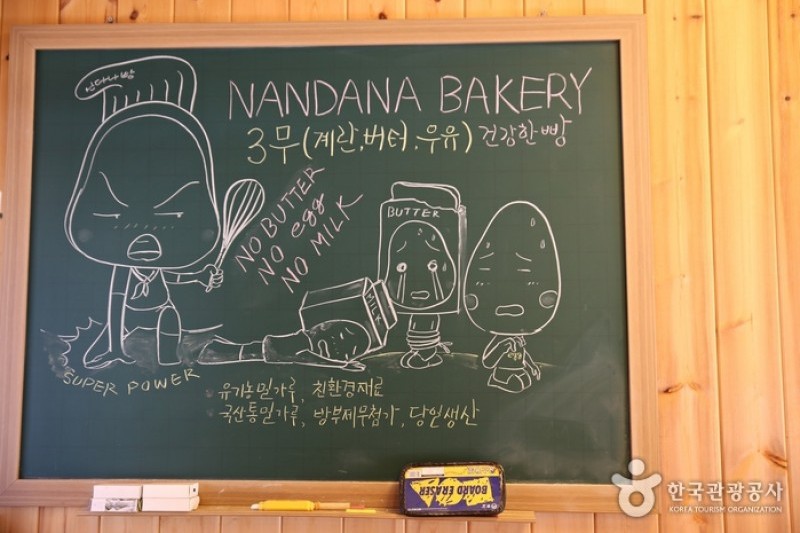 난다나빵
NANDANA BAKERY
3무(계란, 버터, 우유) 건강한빵
NO BUTTER
NO egg
NO MILK
BUTTER
MILK
SUPER POWER
유기농밀가루, 친환경재료
국산통밀가루, 방부제무첨가, 당일생산
BOARD ERASER
한국관광공사
KOREA TOURISM ORGANIZATION